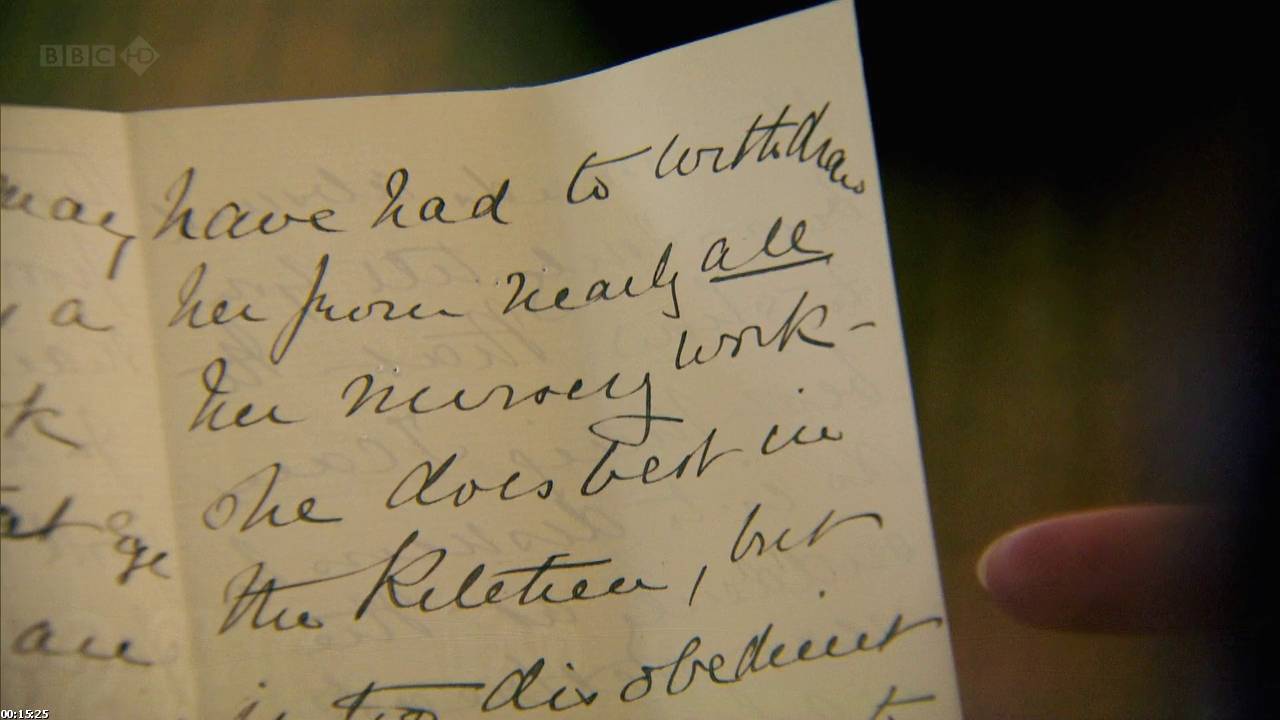 BBC HD
may have had to withdraw
y a her from nearly all
k her nursery work -
she does best in
at age the Kitchen, but
an is too disobedient
to
00:15:25